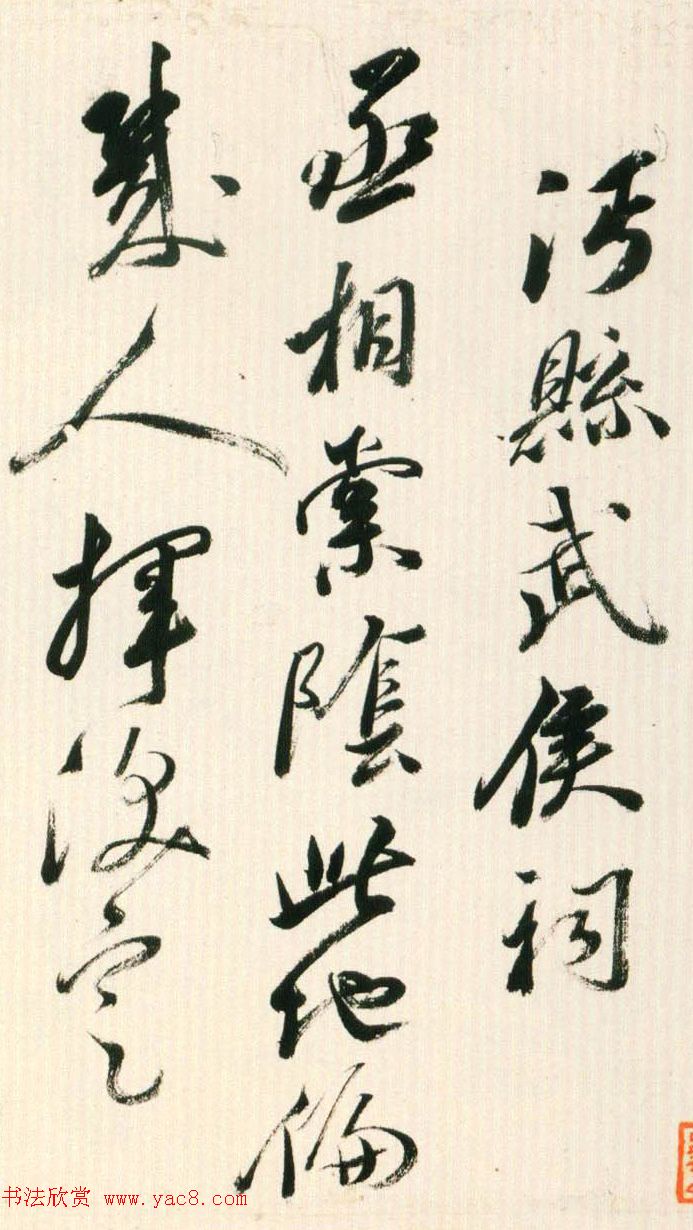 沔縣武侯祠
丞相棠陰此地偏
幾人揮淚定
书法欣赏 www.yac8.com